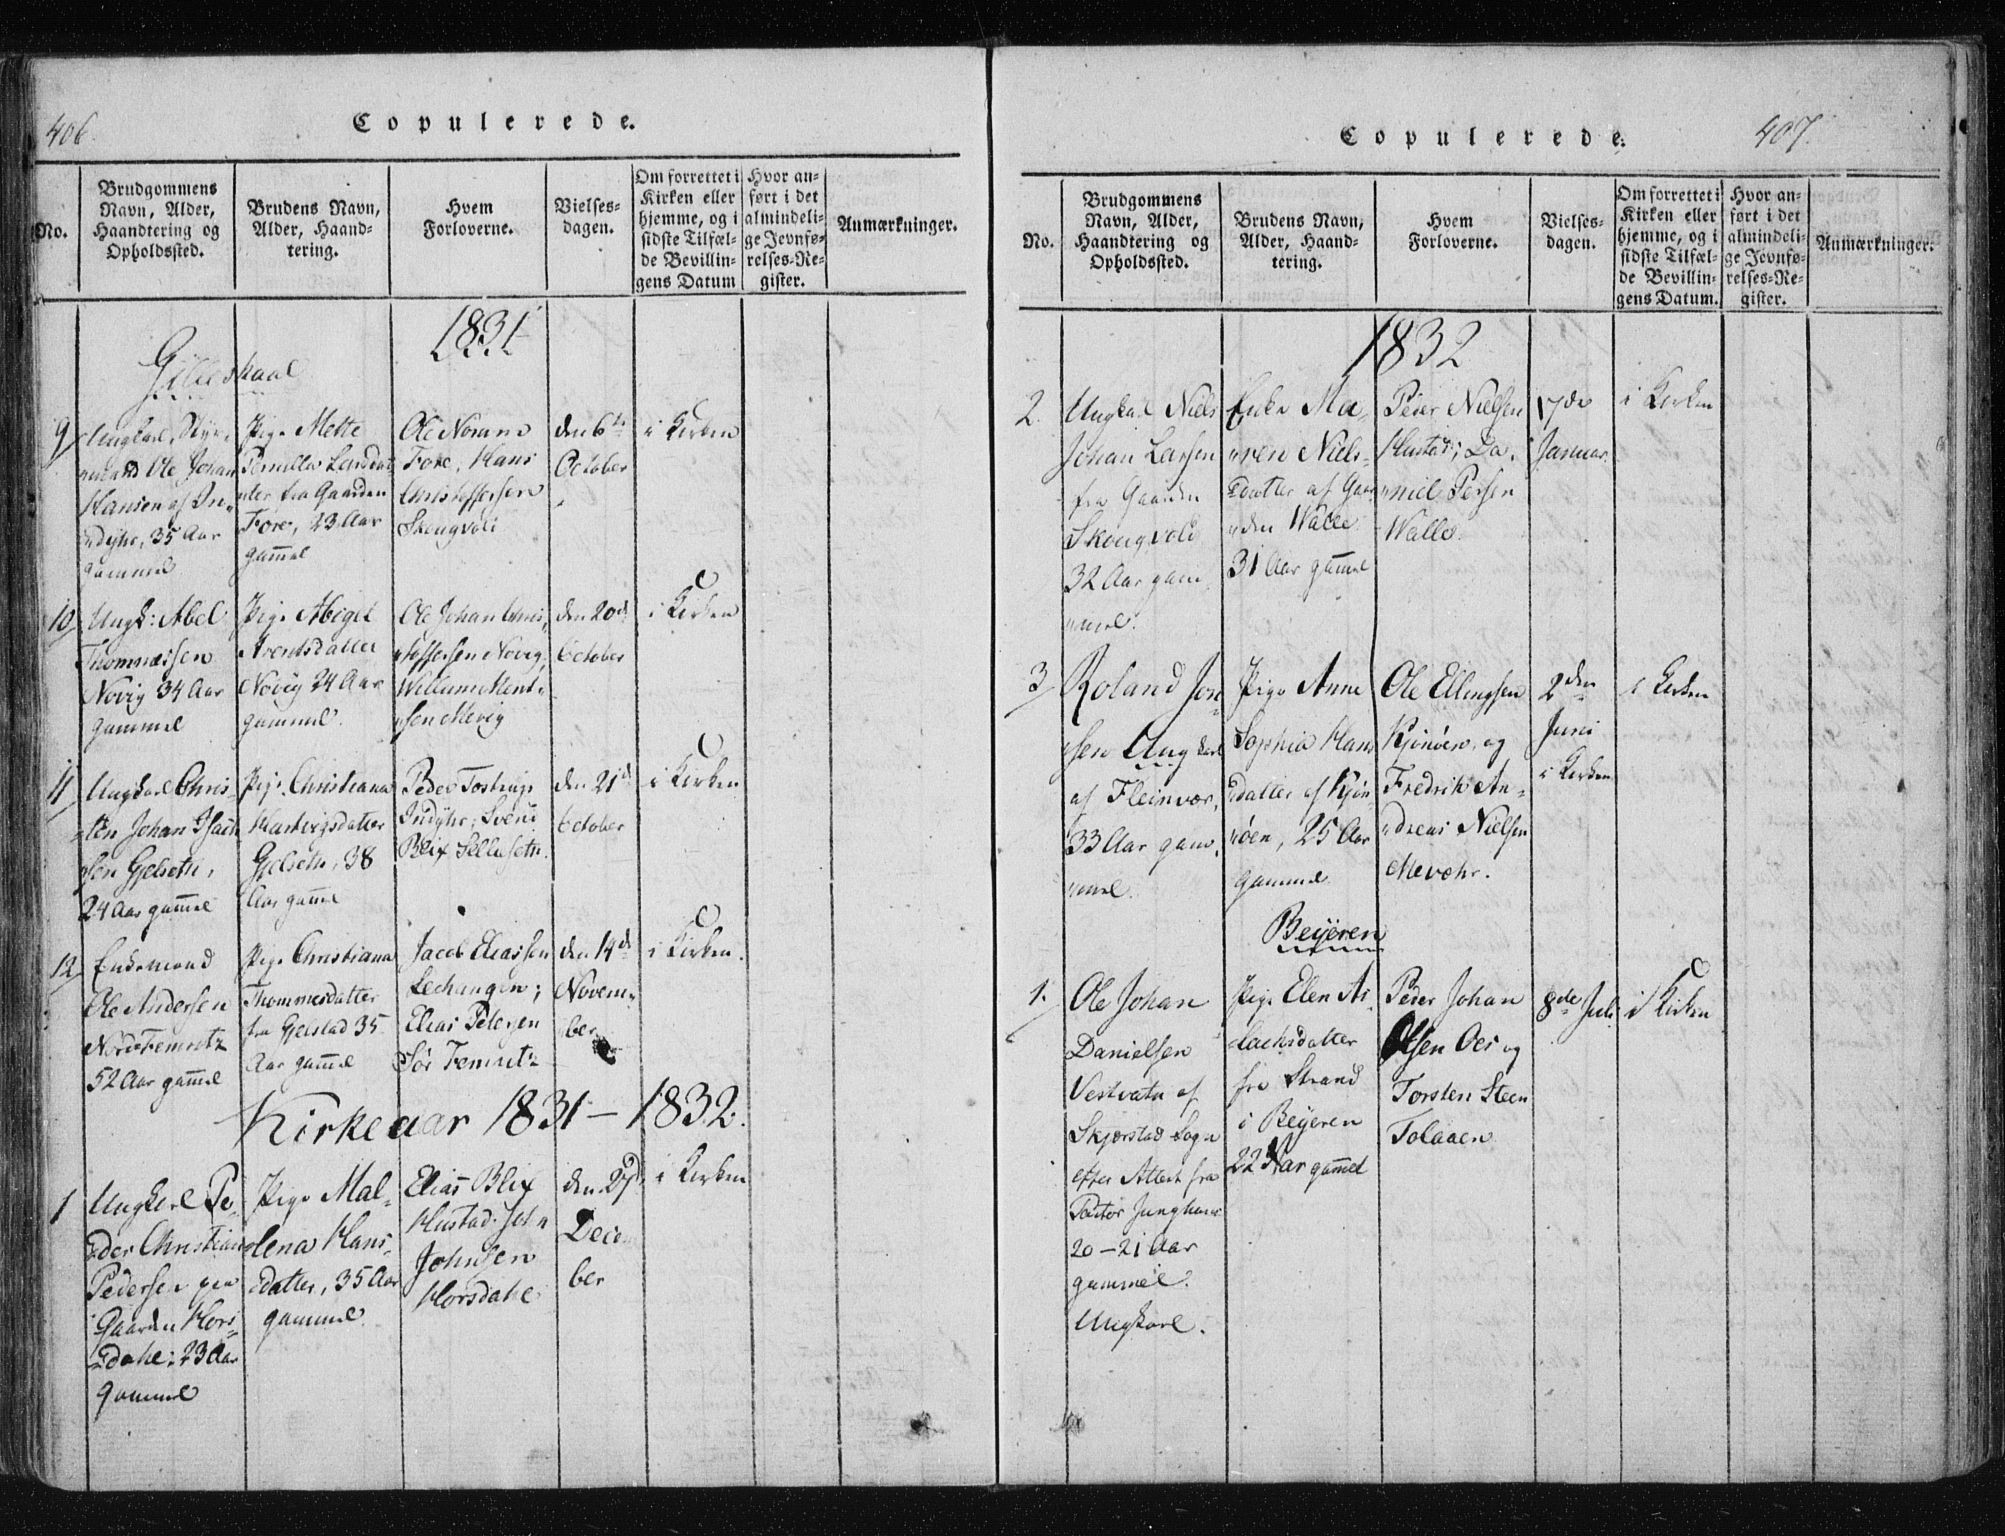 406.
Copulerede.
No.
Brudgommens
Navn, Alder,
Haandtering og
Opholdssted.
Brudens Navn,
Alder, Haand-
tering.
Hvem
Forloverne.
Vielses-
dagen.
Om forrettet i
Kirken eller
hjemme, og i
sidste Tilfæl-
de Bevillin-
gens Datum
Hvor an-
ført i det
almindeli-
ge Jevnfø-
relses-Re-
gister.
Anmærkninger.
1831
Gilleskaal
9
Ungkarl, Styr-
mand Ole Johan
Hansen af In-
dyhr, 35 Aar
gammel
Pige Mette
Pernilla
fra Gaarden
Fore, 23 Aar
gammel
Ole
Fore, Hans
Christoffersen
Skougvold
den 6te
October
i Kirken
10
Ungk: Abel
Thommæssen
Novig 34 Aar
gammel
Pige Abigel
Arentsdatter
Novig 24 Aar
gammel.
Ole Johan Chris-
toffersen Novig,
Willum Ment-
sen Mevig
den 20d
October
i Kirken
11
Ungkarl Chris-
ten Johan Isach-
sen Gjelseth,
24 Aar gammel
Pige Christiana
Hartvigsdatter
Gjelseth, 38
Aar gammel
Peder Tostrup
Indyhr; Svend
Blix Selleseth.
den 21d
October
i Kirken
12
Enkemand
Ole Andersen
Nord Femritz
52 Aar gammel
Pige Christiana
Thommesdatter
fra Gjelstad 35
Aar gammel
Jacob Eliassen
Lechangen;
Elias Petersen
Sør Femritz
den 14d
Novem-
ber
i Kirken.
Kirkeaar 1831 - 1832.
1
Ungkarl Pe-
der Christian
Pedersen paa
Gaarden Hors-
dahl; 23 Aar
gammel
Pige Mal-
lena Hans-
datter, 35 Aar
gammel
Elias Blix
Hustad. John
Johnsen
Horsdahl
den 27d
Decem-
ber
i Kirken
Copulerede.
407.
No.
Brudgommens
Navn, Alder,
Haandtering og
Opholdssted.
Brudens Navn,
Alder, Haand-
tering.
Hvem
Forloverne.
Vielses-
dagen.
Om forrettet i
Kirken eller
hjemme, og i
sidste Tilfæl-
de Bevillin-
gens Datum.
Hvor an-
ført i det
almindeli-
ge Jevnfø-
relses-Re-
gister.
Anmærkninger.
1832
2.
Ungkarl Niels
Johan Larsen
fra Gaarden
Skougvold
32 Aar gam-
mel.
Enke Ma-
ren Niels-
datter af Gaar-
den Walle
31 Aar gammel
Peder Nielsen
Hustad; Da-
niel Persen
Walle.
17de
Januar.
i Kirken
3
Roland Jon-
sen Ungkarl
af Fleinvær,
33 Aar gam-
mel.
Pige Anne
Sophia Hans
datter af Kjøn-
nøen, 25 Aar
gammel
Ole Ellingsen
Kjønøen, og
Fredrik An-
dreas Nielsen
Mevohr.
2den
Juni
i Kirken
i Kirken
Beyeren
1.
Ole Johan
Danielsen
Vestvatn af
Skjerstad Sogn
efter Attest fra
Pastor Junghans
20-21 Aar
gammel.
Ungkarl.
Pige Elen As-
lachsdatter
fra Strand
i Beyeren
22 Aar gammel
Peder Johan
Olsen Oes og
Torsten Steen
Tolaaen
8de Juli
i Kirken